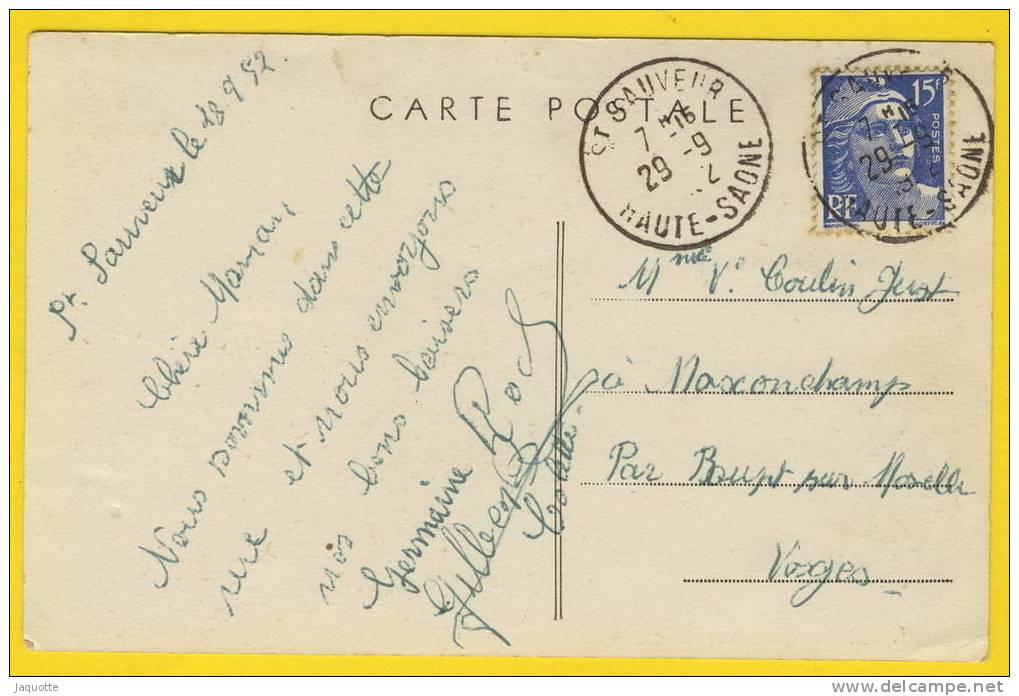 St Sauveur le 28 9 52.
CARTE POSTALE
Chère Maman,
Nous sommes dans cette
rue et nous envoyons
nos bons baisers
Germaine
Gilbert
ST SAUVEUR
7 H 15
29 -9
HAUTE-SAONE
15f
POSTES
RF
HAUTE-SAONE
7 H 15
29
Mme Ve Coulin Just
à Maxonchamp
Par Rupt sur Moselle
Vosges
jaquotte
http://www.delcampe.net